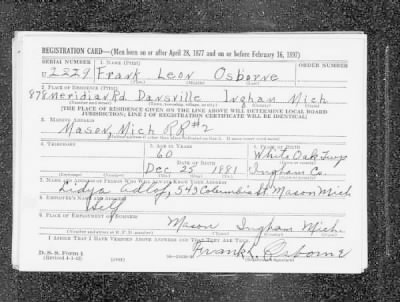 REGISTRATION CARD—(Men born on or after April 28, 1877 and on or before February 16, 1897)
SERIAL NUMBER 1. NAME (Print) ORDER NUMBER
U 2229 Frank Leon Osborne
(First) (Middle) (Last)
2. PLACE OF RESIDENCE (Print)
878 Meridian Rd Dansville Ingham Mich
(Number and street) (Town, township, village, or city) (County) (State)
[THE PLACE OF RESIDENCE GIVEN ON THE LINE ABOVE WILL DETERMINE LOCAL BOARD
JURISDICTION; LINE 2 OF REGISTRATION CERTIFICATE WILL BE IDENTICAL]
3. MAILING ADDRESS
Mason, Mich RR#2
4. TELEPHONE 5. AGE IN YEARS 6. PLACE OF BIRTH
60 White Oak Twp
DATE OF BIRTH
Dec 25 1881 Ingham Co.
7. NAME AND ADDRESS OF PERSON WHO WILL ALWAYS KNOW YOUR ADDRESS
Lidya 543 Columbia St Mason Mich
8. EMPLOYER'S NAME AND ADDRESS
Self
9. PLACE OF EMPLOYMENT OR BUSINESS
Mason Ingham Mich.
(Number and street or R. F. D. number) (Town) (County) (State)
I AFFIRM THAT I HAVE VERIFIED ABOVE ANSWERS AND THAT THEY ARE TRUE.
D. S. S. Form 1
(Revised 4-1-42) (over) Frank L. Osborne